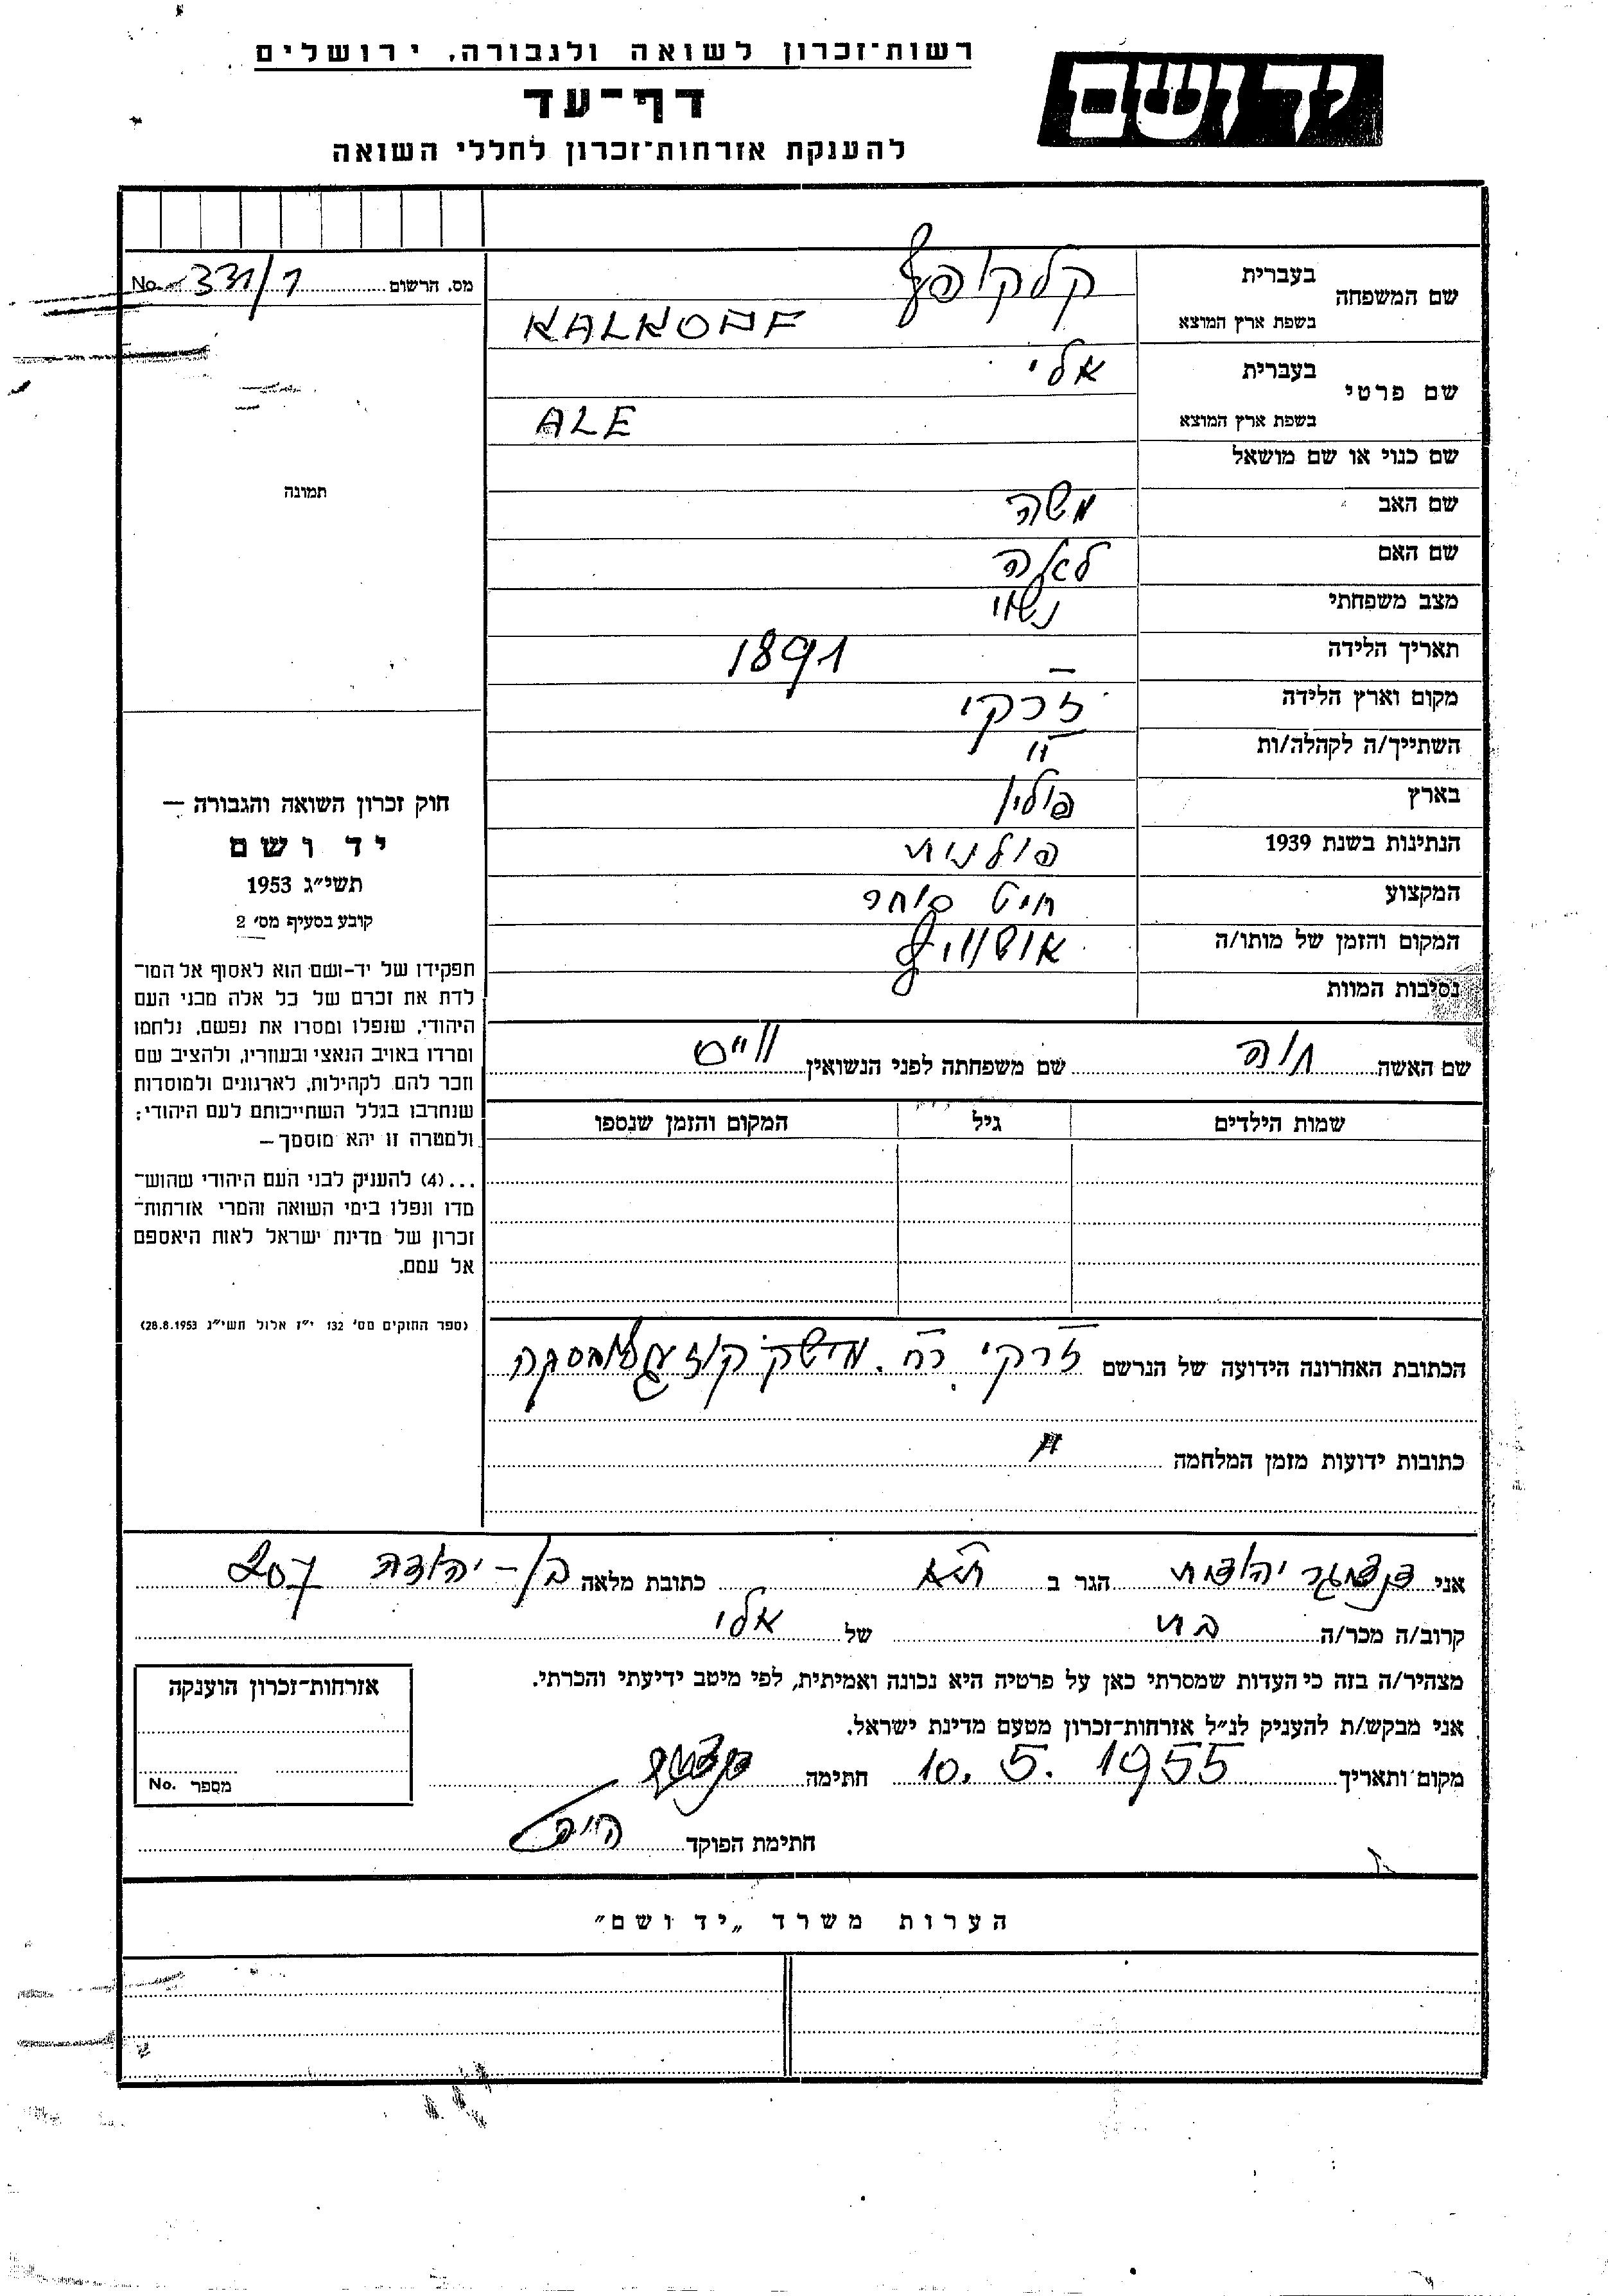 רשות־זכרון לשואה ולגבורה, ירושלים
יד ושם
דף־עד
להענקת אזרחות־זכרון לחללי השואה
מס. הרשום No. 331/1
שם המשפחה בעברית קלקופף
בשפת ארץ המוצא KALKOPF
שם פרטי בעברית אלי
בשפת ארץ המוצא ALE
שם כנוי או שם מושאל
שם האב משה
שם האם לאה
מצב משפחתי נשוי
תאריך הלידה — 1891
מקום וארץ הלידה זרקי
השתייך/ה לקהלה/ות "
בארץ פולין
הנתינות בשנת 1939 פולנית
המקצוע חיט סוחר
המקום והזמן של מותו/ה
נסיבות המוות
שם האשה חוה שם משפחתה לפני הנשואין ווייס
שמות הילדים גיל המקום והזמן שנספו
הכתובת האחרונה הידועה של הנרשם זרקי רח.
כתובות ידועות מזמן המלחמה "
תמונה
חוק זכרון השואה והגבורה —
יד ושם
תשי״ג 1953
קובע בסעיף מס׳ 2
תפקידו של יד-ושם הוא לאסוף אל המו־
לדת את זכרם של כל אלה מבני העם
היהודי, שנפלו ומסרו את נפשם, נלחמו
ומרדו באויב הנאצי ובעוזריו, ולהציב שם
וזכר להם, לקהילות, לארגונים ולמוסדות
שנחרבו בגלל השתייכותם לעם היהודי;
ולמטרה זו יהא מוסמך —
...(4) להעניק לבני העם היהודי שהוש־
מדו ונפלו בימי השואה והמרי אזרחות־
זכרון של מדינת ישראל לאות היאספם
אל עמם.
(ספר החוקים מס׳ 132 י״ז אלול תשי״ג 28.8.1953)
אני יהודית הגר ב ת״א כתובת מלאה בן-יהודה 207
קרוב/ה מכר/ה בת של אלי
מצהיר/ה בזה כי העדות שמסרתי כאן על פרטיה היא נכונה ואמיתית, לפי מיטב ידיעתי והכרתי.
אני מבקש/ת להעניק לנ״ל אזרחות־זכרון מטעם מדינת ישראל.
מקום ותאריך 10. 5. 1955 חתימה
חתימת הפוקד
אזרחות־זכרון הוענקה
מספר No.
הערות משרד „יד ושם״